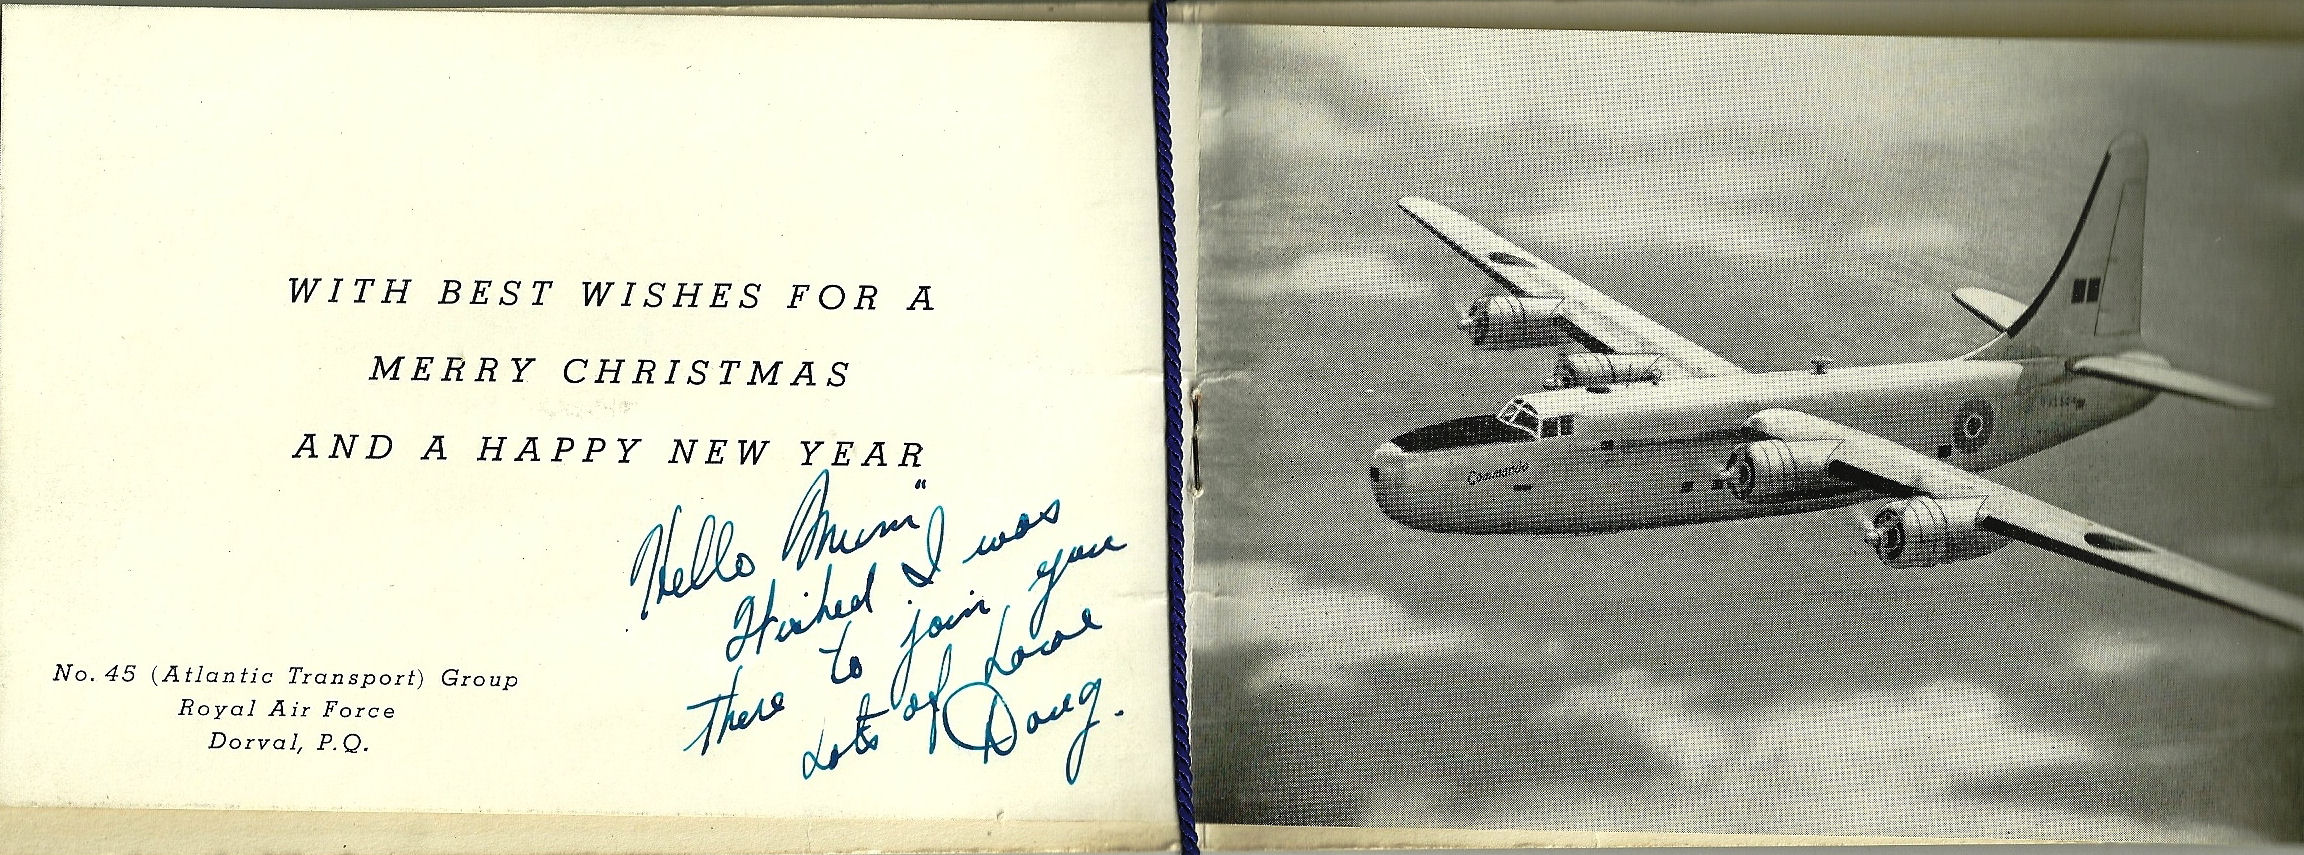 WITH BEST WISHES FOR A
MERRY CHRISTMAS
AND A HAPPY NEW YEAR
Hello Mum"
Wished I was
there to join you
Lots of Love
Doug.
No. 45 (Atlantic Transport) Group
Royal Air Force
Dorval, P.Q.
Commando